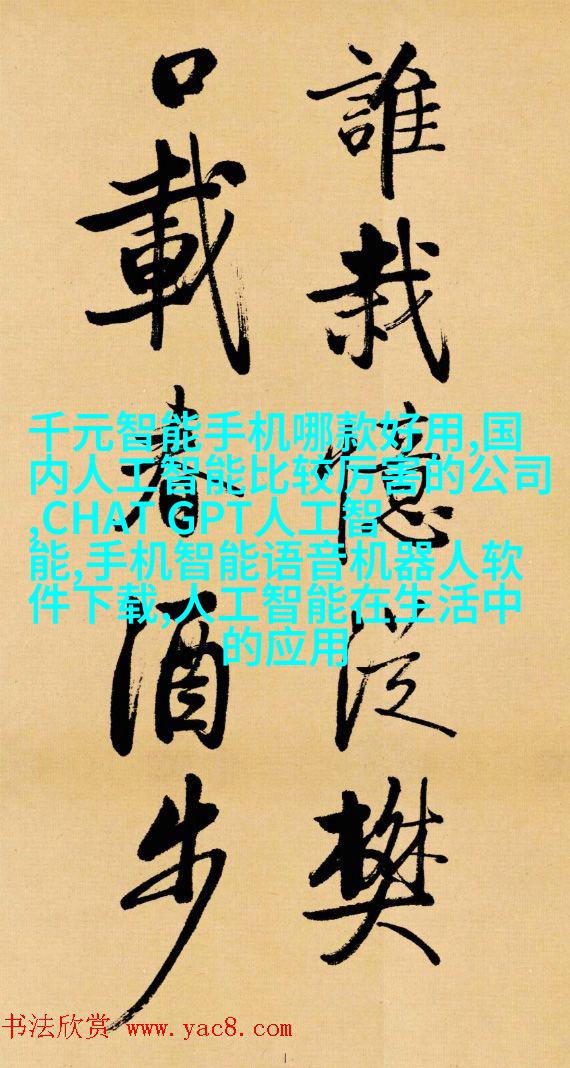 誰栽憶從樊
口載春酒步
千元智能手机哪款好用,国
内人工智能比较厉害的公司
,CHAT GPT人工智
能,手机智能语音机器人软
件下载,人工智能在生活中
的应用
书法欣赏 www.yac8.com